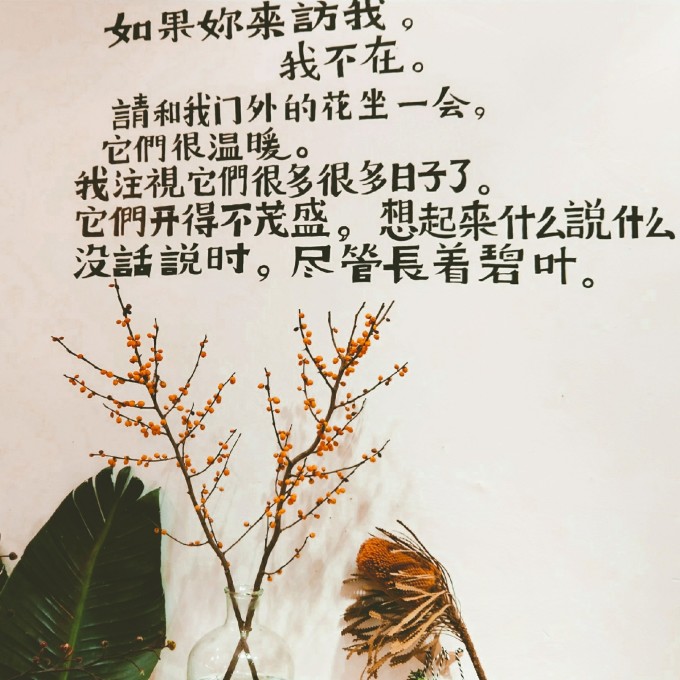 如果妳來訪我，
我不在。
請和我门外的花坐一会，
它們很温暖。
我注視它們很多很多日子了。
它們开得不茂盛，想起來什么説什么
没話説时，尽管長着碧叶。